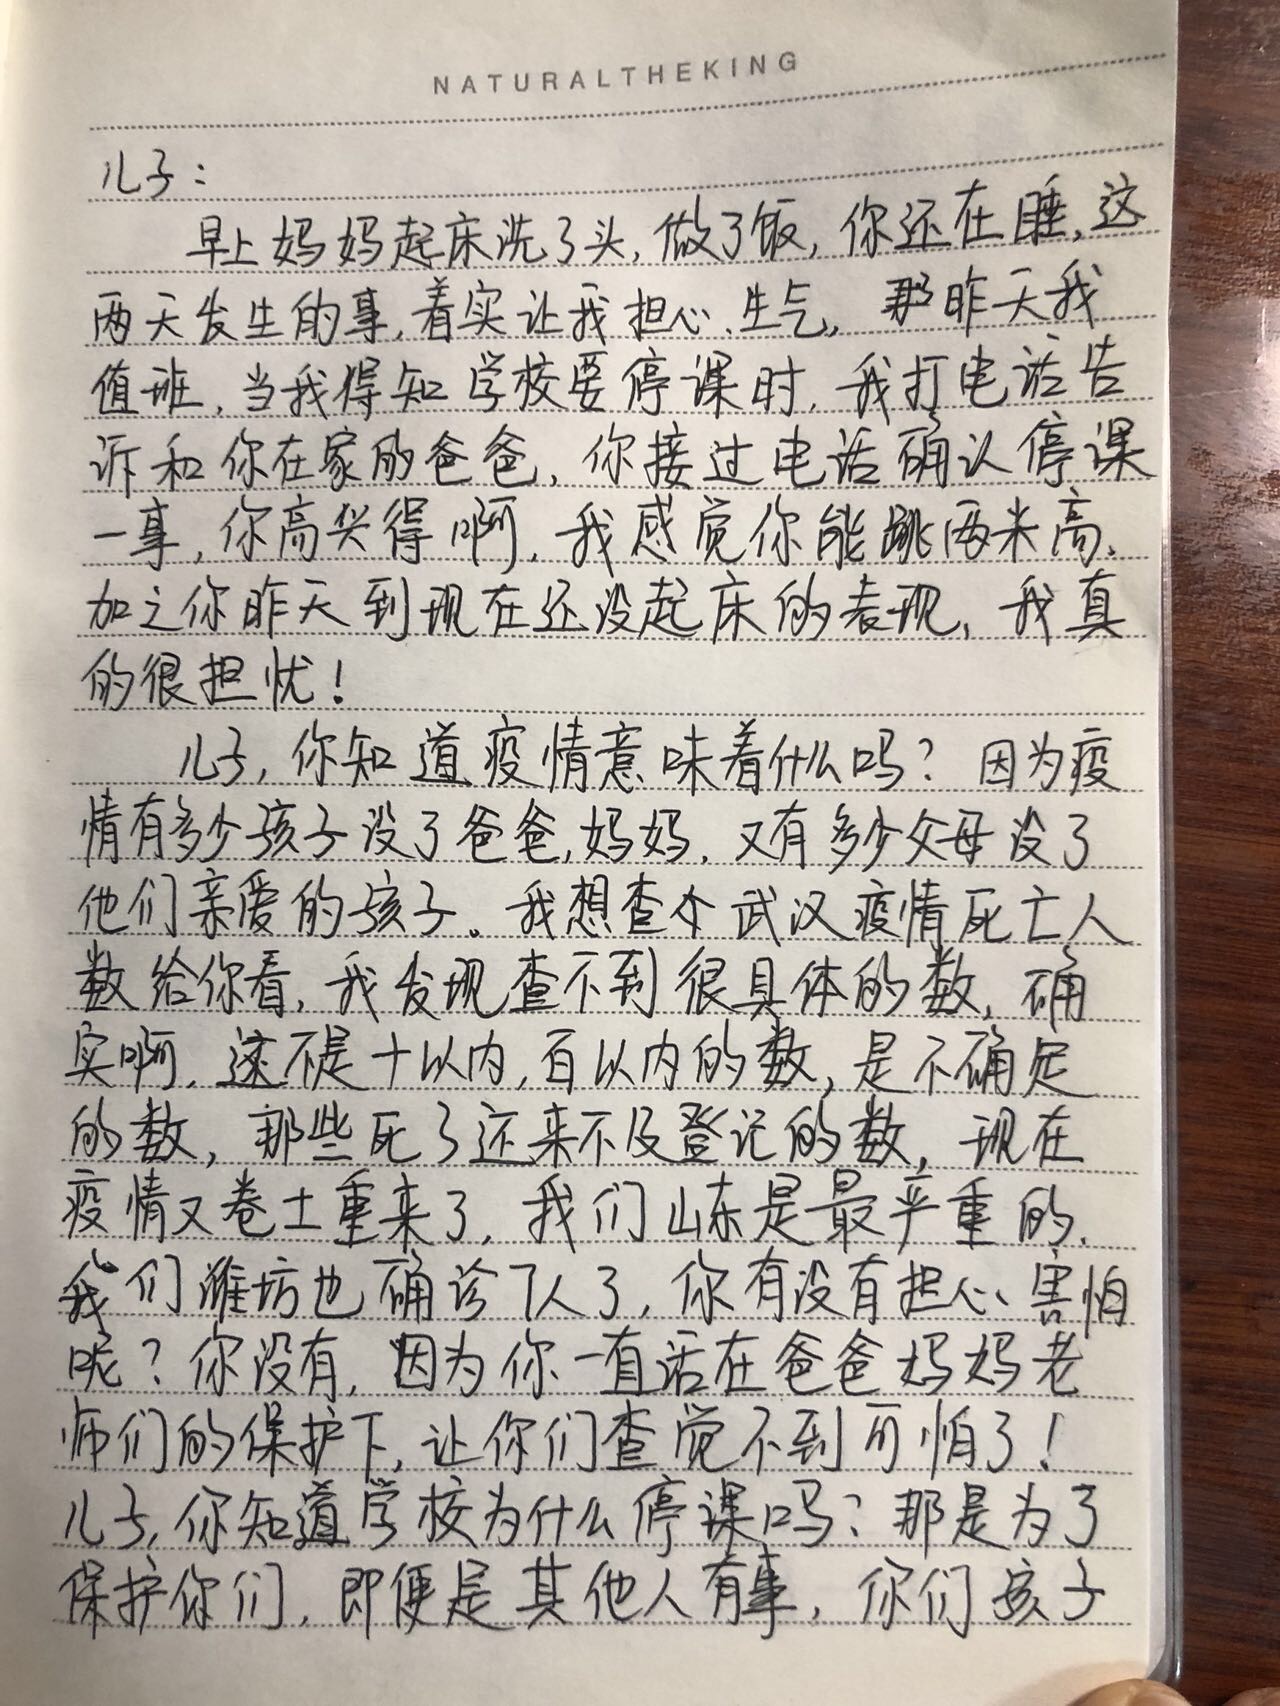 NATURALTHEKING
儿子：
早上妈妈起床洗了头,做了饭,你还在睡,这
两天发生的事,着实让我担心、生气, 那昨天我
值班,当我得知学校要停课时,我打电话告
诉和你在家的爸爸,你接过电话确认停课
一事,你高兴得啊,我感觉你能跳两米高,
加之你昨天到现在还没起床的表现,我真
的很担忧!
儿子,你知道疫情意味着什么吗? 因为疫
情有多少孩子没了爸爸,妈妈,又有多少父母没了
他们亲爱的孩子。我想查个武汉疫情死亡人
数给你看,我发现查不到很具体的数,确
实啊,这不是十以内,百以内的数,是不确定
的数,那些死了还来不及登记的数,现在
疫情又卷土重来了,我们山东是最严重的,
我们潍坊也确诊7人了,你有没有担心、害怕
呢?你没有,因为你一直活在爸爸妈妈老
师们的保护下,让你们查觉不到可怕了!
儿子,你知道学校为什么停课吗?那是为了
保护你们,即便是其他人有事,你们孩子